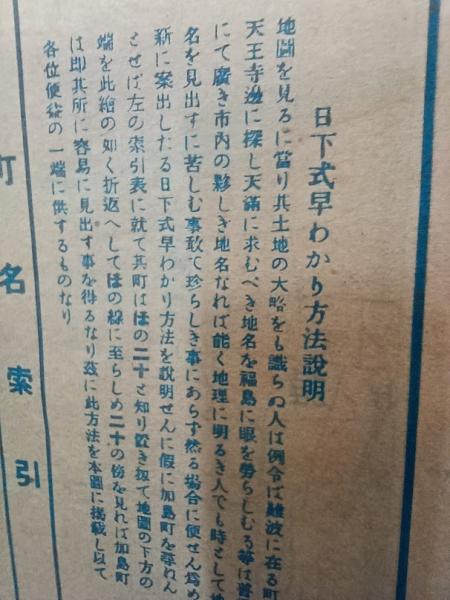 日下式早わかり方法說明
地圖を見るに當り其土地の大略をも識らぬ人は例令ば難波に在る町
天王寺邊に探し天滿に求むべき地名を福島に眼を勞らしむる等は普
にて廣き市內の夥しき地名なれば能く地理に明るき人でも時として地
名を見出すに苦しむ事敢て珍らしき事にあらず然る場合に便せん爲め
新に案出したる日下式早わかり方法を說明せんに假に加島町を尋ねん
とせば左の索引表に就て其町はほの二十と知り置き扨て地圖の下方の
端を此繪の如く折返へしてほの線に至らしめ二十の傍を見れば加島町
は即其所に容易に見出す事を得るなり玆に此方法を本圖に揭載し以て
各位便益の一端に供するものなり
町名索引